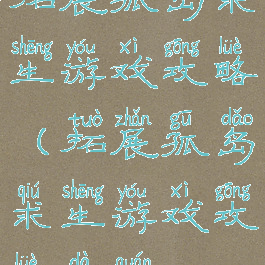 拓展孤岛求
shēng yóu xì gōng lüè
生游戏攻略
tuò zhǎn gū dǎo
(拓展孤岛
qiú shēng yóu xì gōng
求生游戏攻
lüè dà quán